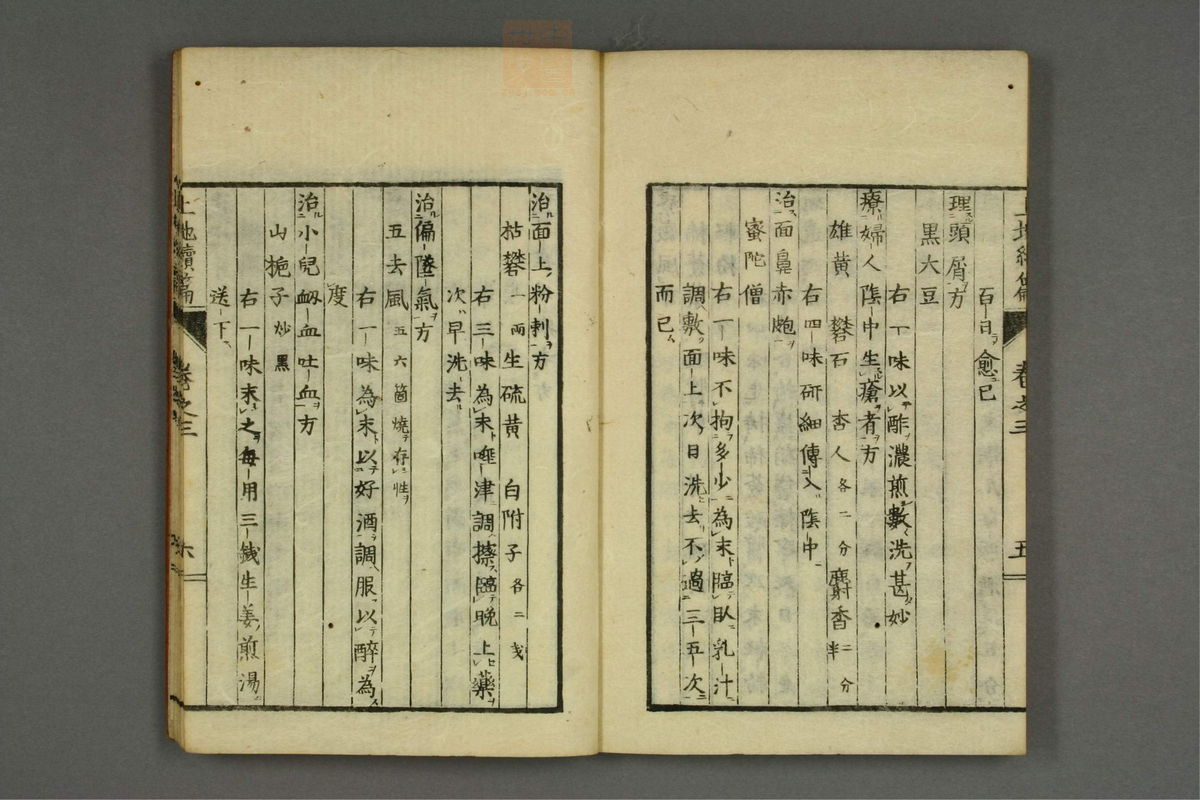 百日愈已
理頭屑方
黒大豆
右一味以酢濃煎數洗甚妙
療婦人陰中生瘡者方
雄黄 礬石 杏人各二分 麝香二分半
右四味研細傳入陰中
治面鼻赤皰
蜜陀僧
右一味不拘多少為末臨臥乳汁
調敷面上次日洗去不過三五次
而已
卷之三
五
治面上粉刺方
枯礬一兩 生硫黄 白附子各二戔
右三味為末唾津調擦臨晩上藥
次早洗去
治偏墜氣方
五去風五六箇燒存性
右一味為末以好酒調服以醉為
度
治小兒衂血吐血方
山梔子炒黒
右一味末之毎用三錢生姜煎湯
送下
上池續篇
卷之三
六